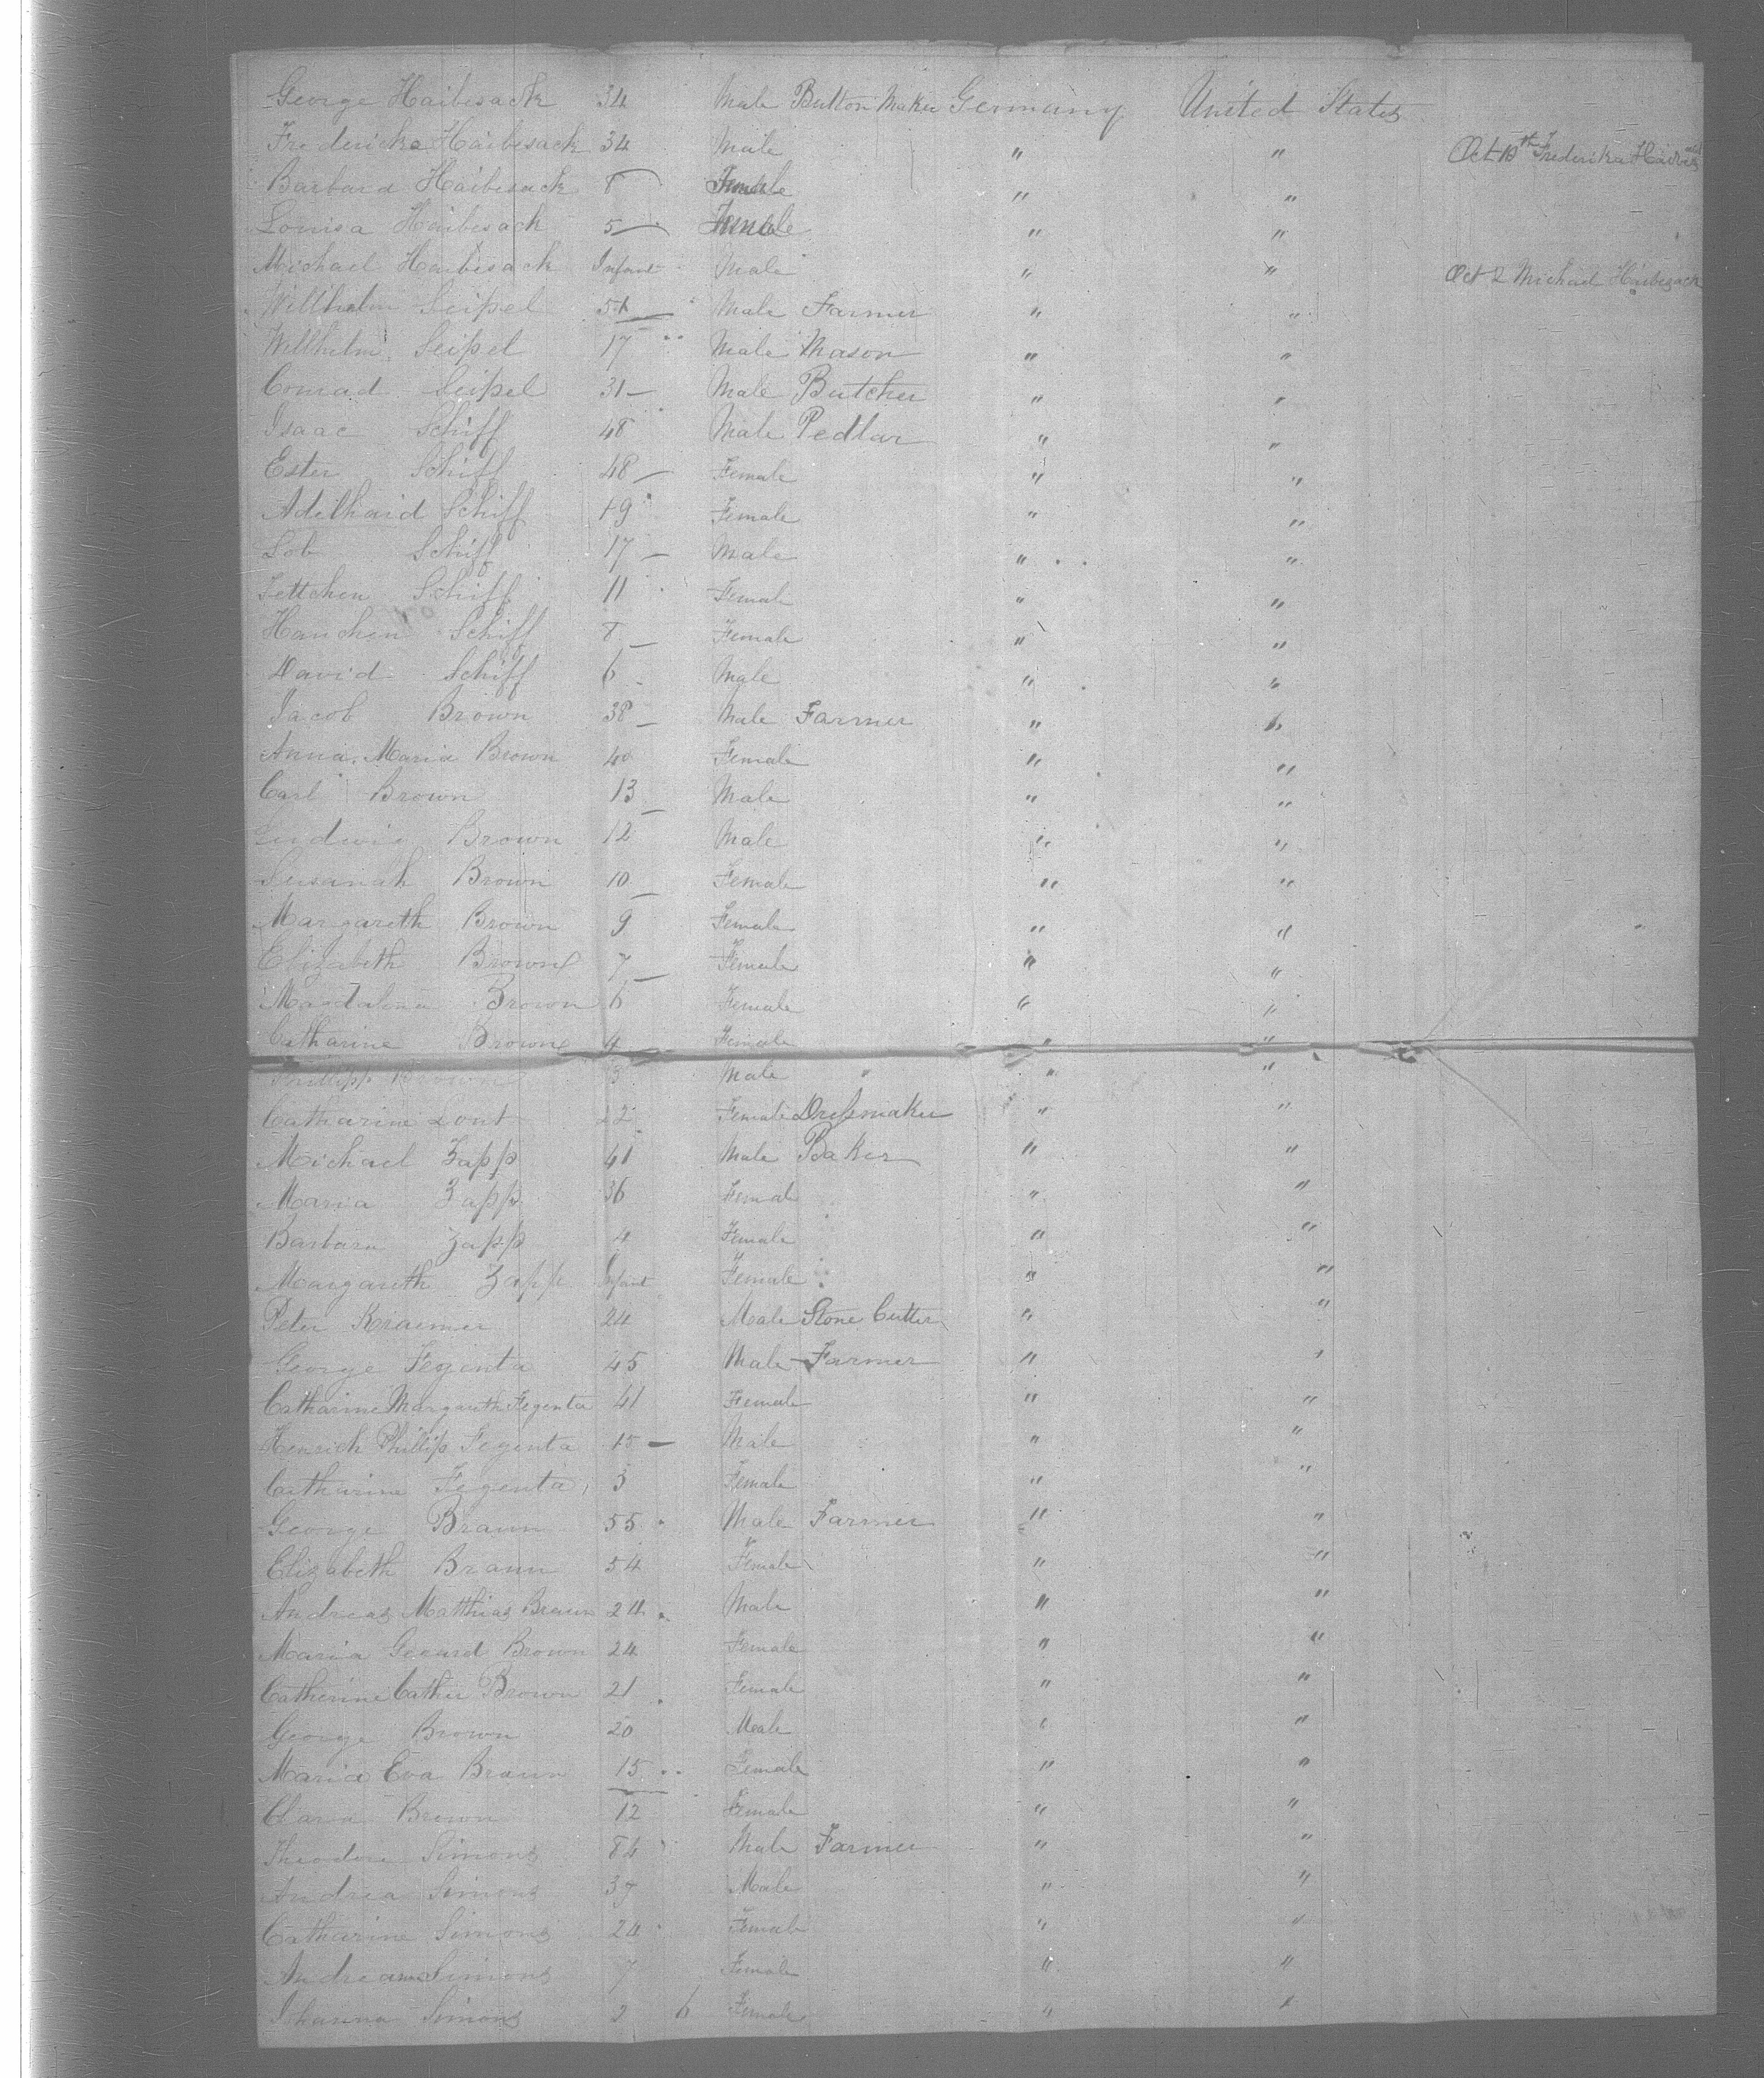 George Haibesack 34 Male Button Maker Germany United States
Fredericka Haibesack 34 Male " " Oct 10th Frederika Haibesack
Barbara Haibesack 8 Female " "
Louisa Haibesack 5 Female " "
Michael Haibesack Infant Male " " Oct 2 Michael Haibesack
Willhelm Seipel 51 Male Farmer " "
Willhelm Seipel 17 Male Mason " "
Conrad Seipel 31 Male Butcher " "
Isaac Schiff 48 Male Pedlar " "
Ester Schiff 48 Female " "
Adelhaid Schiff 19 Female " "
Lob Schiff 17 Male " "
Jettchen Schiff 11 Female " "
Hanchen Schiff 8 Female " "
David Schiff 6 Male " "
Jacob Brown 38 Male Farmer " "
Anna Maria Brown 40 Female " "
Carl Brown 13 Male " "
Ludwig Brown 12 Male " "
Susanah Brown 10 Female " "
Margareth Brown 9 Female " "
Elizabeth Brown 7 Female " "
Magdalena Brown 6 Female " "
Catharine Brown 4 Female " "
Phillipp Brown 3 Male " " "
Catharine Lout 22 Female Dressmaker " "
Michael Zapp 41 Male Baker " "
Maria Zapp 36 Female " "
Barbara Zapp 4 Female " "
Margareth Zapp Infant Female " "
Peter Kraemer 24 Male Stone Cutter " "
George Fegenta 45 Male Farmer " "
Catharine Margareth Fegenta 41 Female " "
Henrich Phillip Fegenta 15 Male " "
Catharine Fegenta 3 Female " "
George Braun 55 Male Farmer " "
Elizabeth Braun 54 Female " "
Andreas Matthias Braun 24 Male " "
Maria Brown 24 Female " "
Catherine Cather Brown 21 Female " "
George Brown 20 Male " "
Maria Eva Braun 15 Female " "
Clara Brown 12 Female " "
Theodore Simons 84 Male Farmer " "
Andrea Simons 37 Male " "
Catharine Simons 24 Female " "
Simons 7 Female " "
Simons 2 6 Female " "